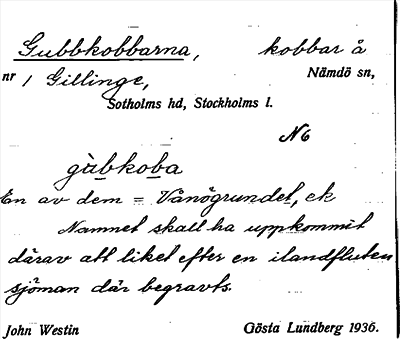 Gubbkobbarna, kobbar å
nr 1 Gillinge, Nämdö sn,
Sotholms hd, Stockholms l.
N6
gùbkoba
En av dem = Vånögrundet, ek
Namnet skall ha uppkommit
därav att liket efter en ilandfluten
sjöman där begravts.
John Westin Gösta Lundberg 1936.